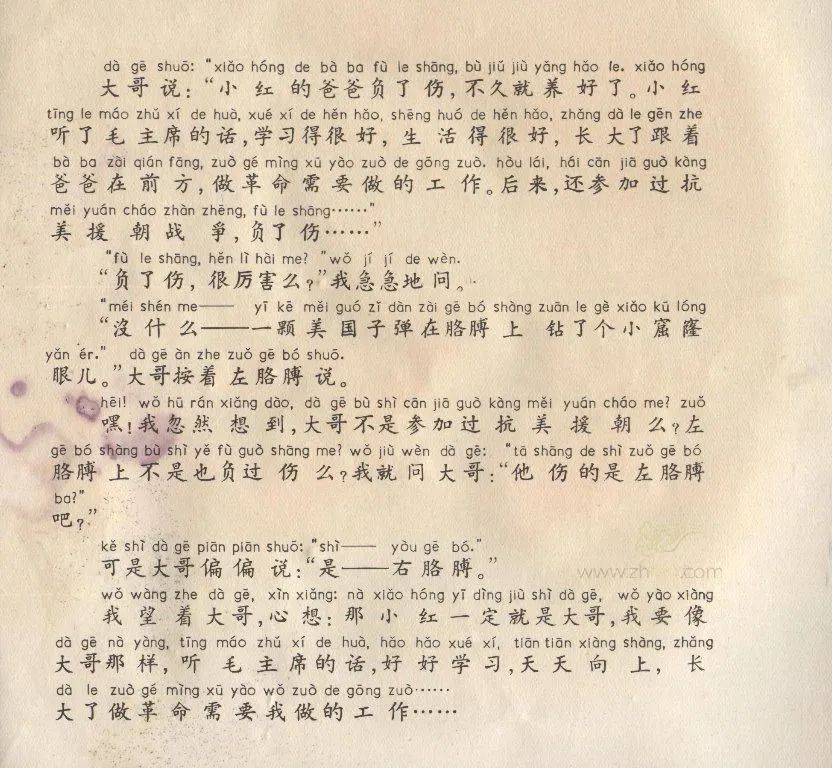 dà gē shuō: "xiǎo hóng de bà ba fù le shāng, bù jiǔ jiù yǎng hǎo le. xiǎo hóng
大哥说：“小红的爸爸负了伤，不久就养好了。小红
tīng le máo zhǔ xí de huà, xué xí de hěn hǎo, shēng huó de hěn hǎo, zhǎng dà le gēn zhe
听了毛主席的话，学习得很好，生活得很好，长大了跟着
bà ba zài qián fāng, zuò gé mìng xū yào zuò de gōng zuò. hòu lái, hái cān jiā guò kàng
爸爸在前方，做革命需要做的工作。后来，还参加过抗
měi yuán cháo zhàn zhēng, fù le shāng……"
美援朝战争，负了伤……”
"fù le shāng, hěn lì hài me?" wǒ jí jí de wèn.
“负了伤，很厉害么？”我急急地问。
"méi shén me—— yī kē měi guó zǐ dàn zài gē bó shàng zuān le gè xiǎo kū lóng
“沒什么——一颗美国子弹在胳膊上钻了个小窟窿
yǎn ér." dà gē àn zhe zuǒ gē bó shuō.
眼儿。”大哥按着左胳膊说。
hēi! wǒ hū rán xiǎng dào, dà gē bù shì cān jiā guò kàng měi yuán cháo me? zuǒ
嘿！我忽然想到，大哥不是参加过抗美援朝么？左
gē bó shàng bù shì yě fù guò shāng me? wǒ jiù wèn dà gē: "tā shāng de shì zuǒ gē bó
胳膊上不是也负过伤么？我就问大哥：“他伤的是左胳膊
ba?"
吧？”
kě shì dà gē piān piān shuō: "shì—— yòu gē bó."
可是大哥偏偏说：“是——右胳膊。”
wǒ wàng zhe dà gē, xīn xiǎng: nà xiǎo hóng yī dìng jiù shì dà gē, wǒ yào xiàng
我望着大哥，心想：那小红一定就是大哥，我要像
dà gē nà yàng, tīng máo zhǔ xí de huà, hǎo hǎo xué xí, tiān tiān xiàng shàng, zhǎng
大哥那样，听毛主席的话，好好学习，天天向上，长
dà le zuò gé mìng xū yào wǒ zuò de gōng zuò……
大了做革命需要我做的工作……